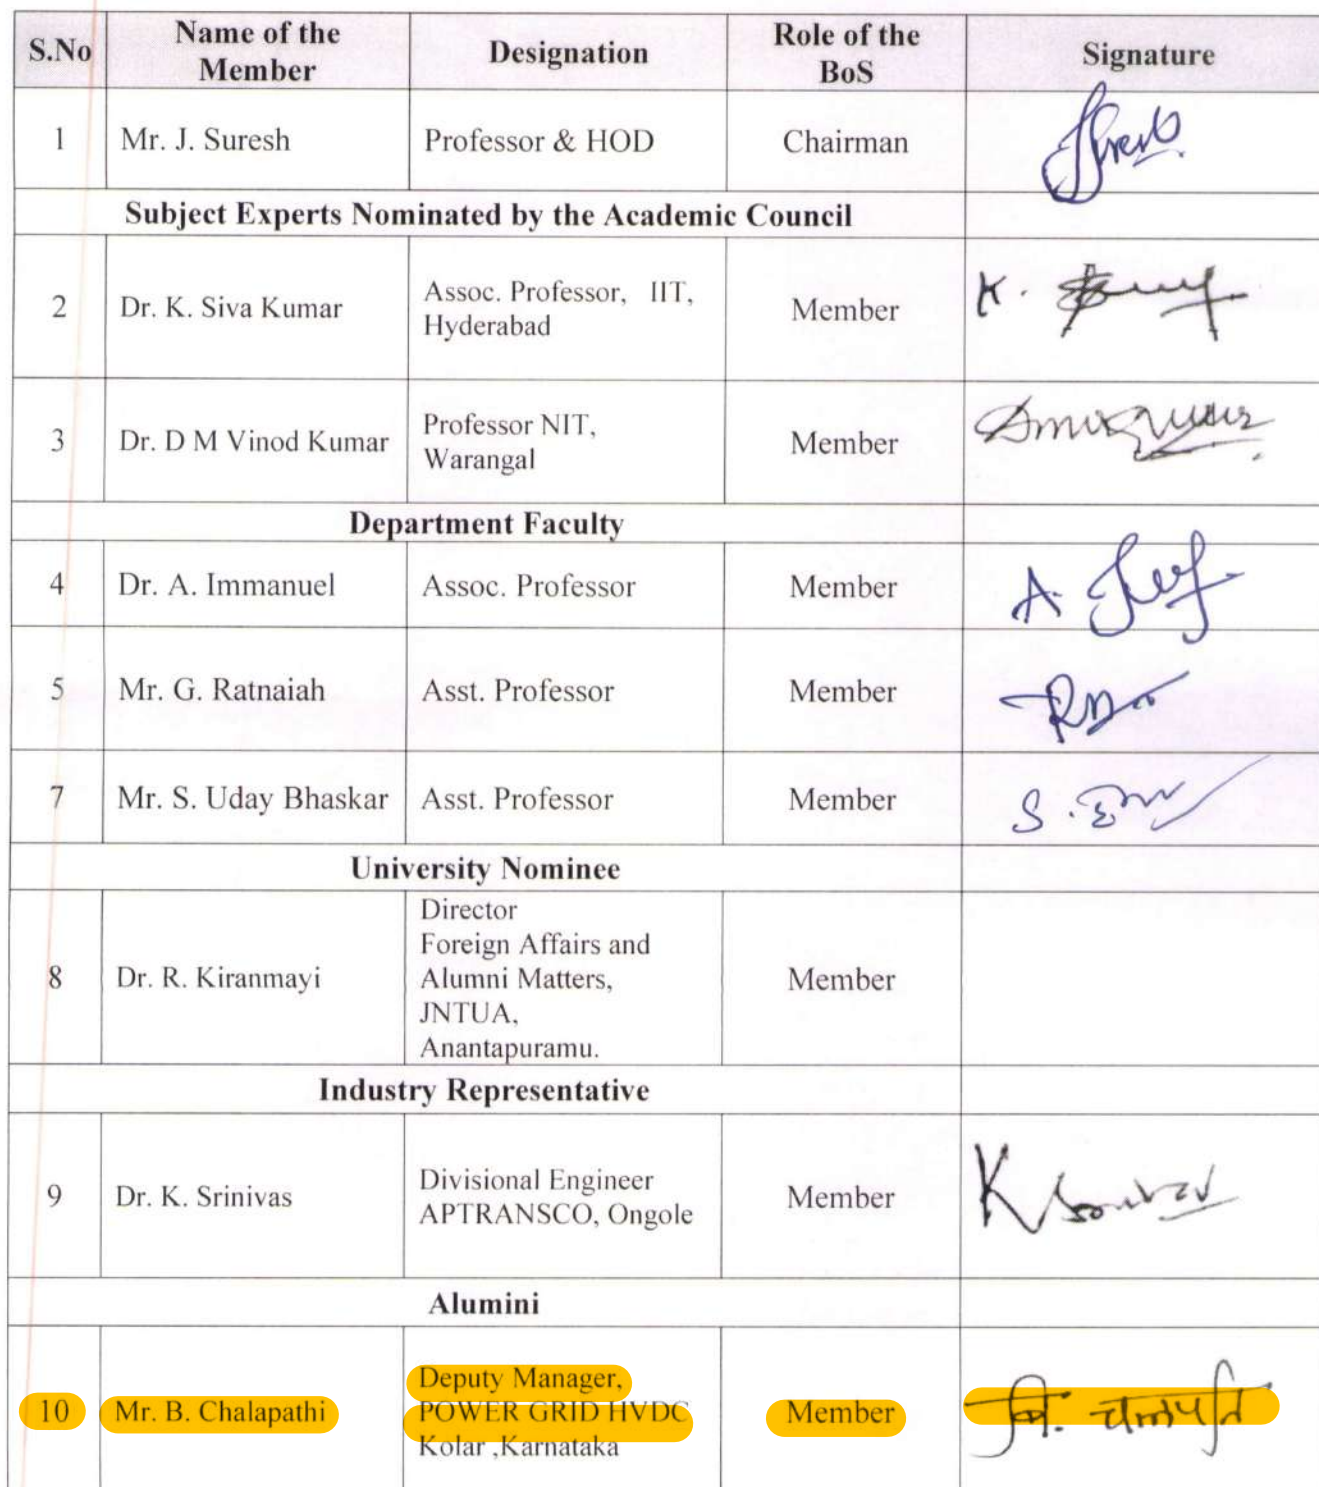 S.No Name of the Member Designation Role of the BoS Signature
1 Mr. J. Suresh Professor & HOD Chairman
Subject Experts Nominated by the Academic Council
2 Dr. K. Siva Kumar Assoc. Professor, IIT, Hyderabad Member K.
3 Dr. D M Vinod Kumar Professor NIT, Warangal Member
Department Faculty
4 Dr. A. Immanuel Assoc. Professor Member A.
5 Mr. G. Ratnaiah Asst. Professor Member
7 Mr. S. Uday Bhaskar Asst. Professor Member S.
University Nominee
8 Dr. R. Kiranmayi Director Foreign Affairs and Alumni Matters, JNTUA, Anantapuramu. Member
Industry Representative
9 Dr. K. Srinivas Divisional Engineer APTRANSCO, Ongole Member K
Alumini
10 Mr. B. Chalapathi Deputy Manager, POWER GRID HVDC Kolar ,Karnataka Member